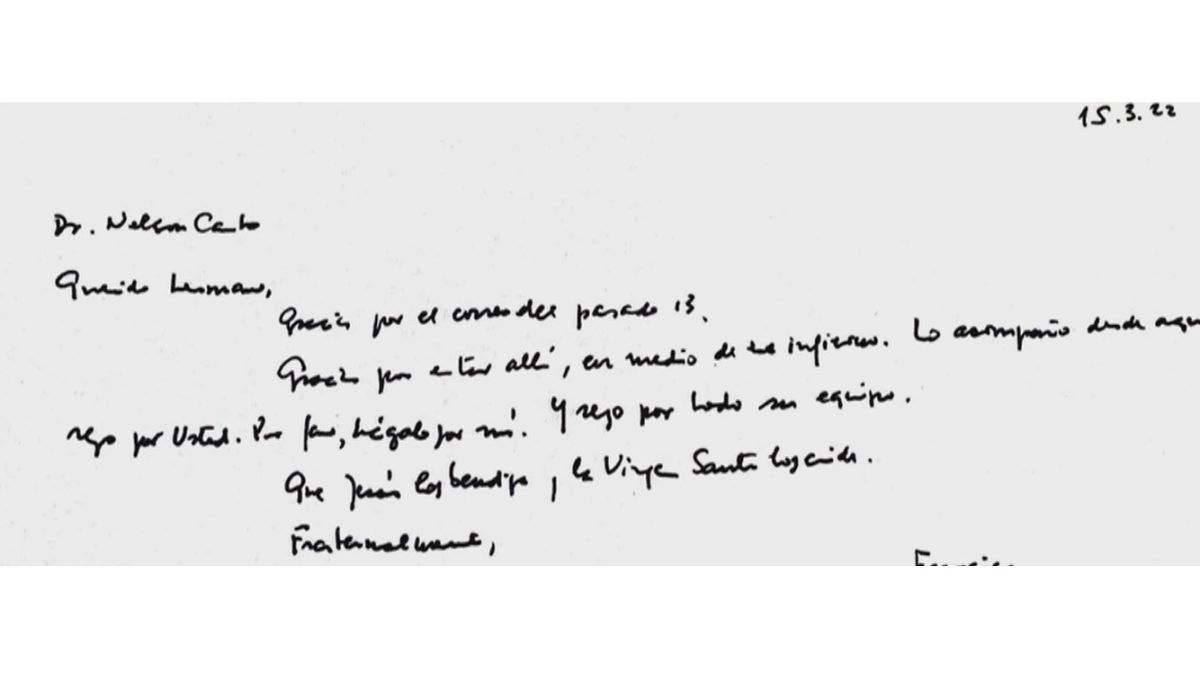 15.3.22
Dr. Nelson Castro
Querido hermano,
Gracias por el correo del pasado 13.
Gracias por estar allí, en medio de ese infierno. Lo acompaño desde aquí
rezo por Usted. Por favor, hágalo por mí. Y rezo por todo su equipo.
Que Jesús los bendiga y la Virgen Santa los cuide.
Fraternalmente,